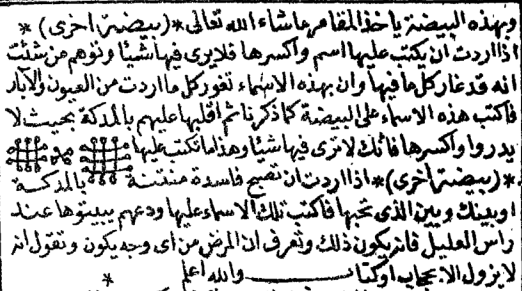 وبهذه البيضة ياخذ المقامر ما شاء الله تعالى *(بيضة اخرى)*
اذا اردت ان يكتب عليها اسم واكسرها فلا يرى فيها شيئا وتوهم من شئت
انه قد غار كل ما فيها وان بهذه الاسماء تغور كل ما اردت من العيون والآبار
فاكتب هذه الاسماء على البيضة كما ذكرنا ثم اقلبها عليهم بالدكة بحيث لا
يدروا واكسرها فانك لا ترى فيها شيئا وهذا ما تكتب عليها
*(بيضة اخرى)* اذا اردت ان تصبح فاسدة منتنة بالدكة
او بينك وبين الذى تحبها فاكتب تلك الاسماء عليها ودعهم يبيتوها عند
راس العليل فانه يكون ذلك وتعرف ان المرض من اى وجه يكون وتقول انه
لا يزول الا بحجاب او كتاب والله اعلم *